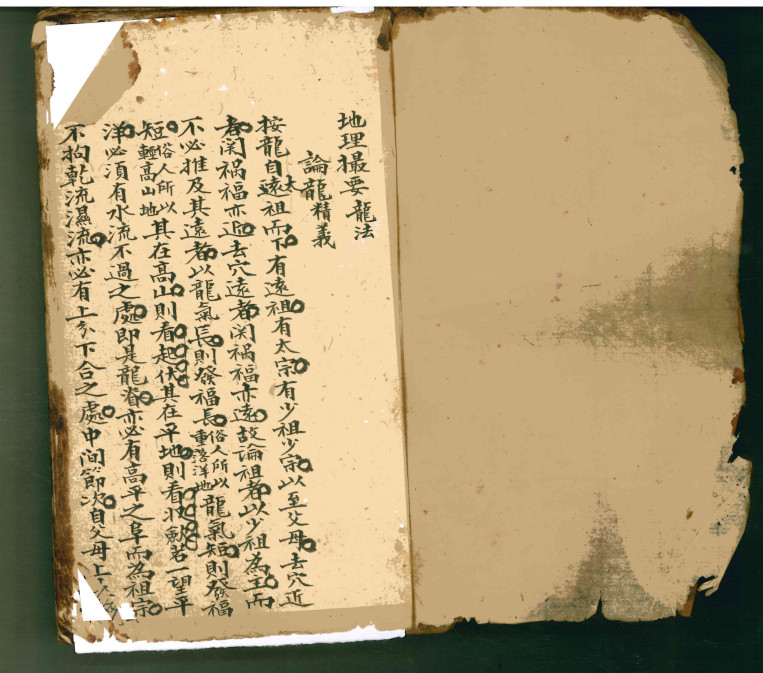 地理撮要 龍法
論龍精義
按龍自遠太祖而下有遠祖有太宗有少祖少宗以至父母去穴近
者関禍福亦近去穴遠者関禍福亦遠故論祖者以少祖為主而
不必推及其遠者以龍氣長則發福長俗人所以重落洋地龍氣短則發福
短俗人所以輕高山地其在高山則看起伏其在平地則看收斂若一望平
洋必須有水流不過之處即是龍脊亦必有高平之阜而為祖宗
不拘乾流濕流亦必有上分下合之處中間節次自父母上